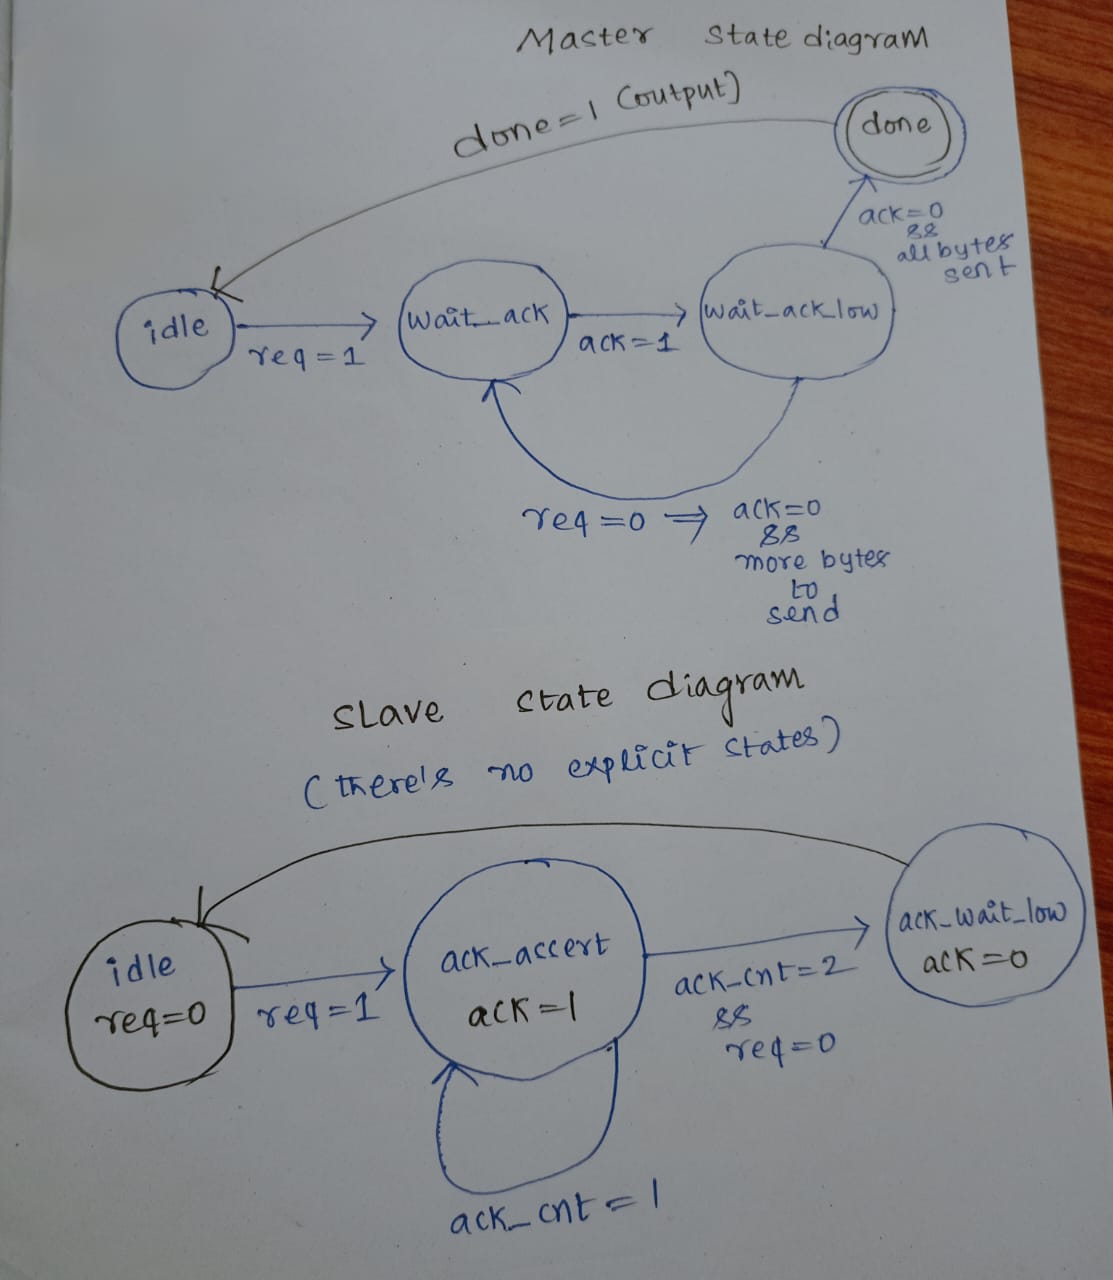 Master State diagram
done=1 (output)
done
ack=0
&&
all bytes
sent
idle
wait_ack
wait_ack_low
req=1
ack=1
req=0 ⇒ ack=0
&&
more bytes
to
send
SLave State diagram
(there's no explicit states)
idle
req=0
req=1
ack_accert
ack=1
ack_cnt=2
&&
req=0
ack_wait_low
ack=0
ack_cnt=1